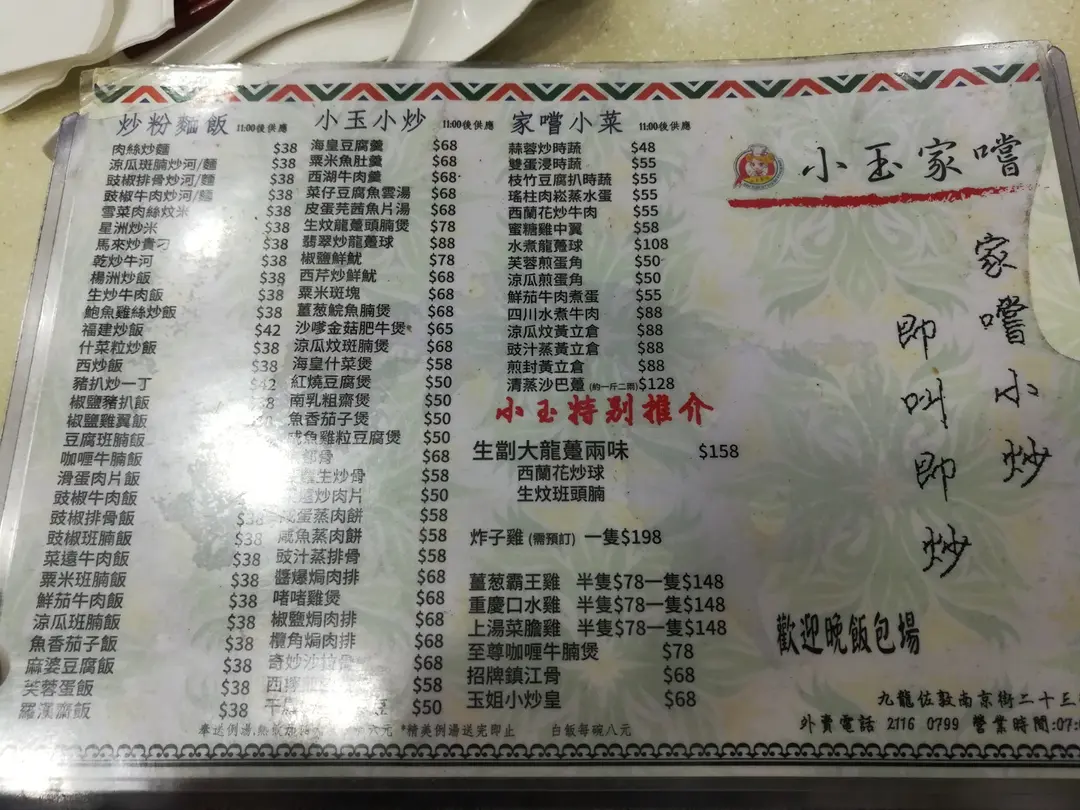 炒粉麵飯 11:00後供應
肉絲炒麵 $38
涼瓜斑腩炒河/麵 $38
豉椒排骨炒河/麵 $38
豉椒牛肉炒河/麵 $38
雪菜肉絲炆米 $38
星洲炒米 $38
馬來炒貴刁 $38
乾炒牛河 $38
楊洲炒飯 $38
生炒牛肉飯 $38
鮑魚雞絲炒飯 $38
福建炒飯 $42
什菜粒炒飯 $38
西炒飯 $38
豬扒炒一丁
椒鹽豬扒飯
椒鹽雞翼飯
豆腐班腩飯
咖喱牛腩飯
滑蛋肉片飯
豉椒牛肉飯
豉椒排骨飯 $38
豉椒班腩飯 $38
菜遠牛肉飯 $38
粟米班腩飯 $38
鮮茄牛肉飯 $38
涼瓜班腩飯 $38
魚香茄子飯 $38
麻婆豆腐飯 $38
芙蓉蛋飯 $38
羅漢齋飯 $38
小玉小炒 11:00後供應
海皇豆腐羹 $68
粟米魚肚羹 $68
西湖牛肉羹 $68
菜仔豆腐魚雲湯 $68
皮蛋芫茜魚片湯 $68
生炆龍躉頭腩煲 $78
翡翠炒龍躉球 $88
椒鹽鮮魷 $78
西芹炒鮮魷 $68
粟米斑塊 $68
薑葱鯇魚腩煲 $68
沙嗲金菇肥牛煲 $65
涼瓜炆班腩煲 $68
海皇什菜煲 $58
紅燒豆腐煲 $50
南乳粗齋煲 $50
魚香茄子煲 $50
咸魚雞粒豆腐煲 $50
骨 $68
生炒骨 $58
炒肉片 $50
咸蛋蒸肉餅 $58
咸魚蒸肉餅 $58
豉汁蒸排骨 $58
醬爆焗肉排 $68
啫啫雞煲 $68
椒鹽焗肉排 $68
欖角焗肉排 $68
奇妙沙拉骨 $68
西 $58
干 $50
家嚐小菜 11:00後供應
蒜蓉炒時蔬 $48
雙蛋浸時蔬 $55
枝竹豆腐扒時蔬 $55
瑤柱肉崧蒸水蛋 $55
西蘭花炒牛肉 $55
蜜糖雞中翼 $58
水煮龍躉球 $108
芙蓉煎蛋角 $50
涼瓜煎蛋角 $50
鮮茄牛肉煮蛋 $55
四川水煮牛肉 $88
涼瓜炆黃立倉 $88
豉汁蒸黃立倉 $88
煎封黃立倉 $88
清蒸沙巴躉 (約一斤二兩) $128
小玉特别推介
生劏大龍躉兩味 $158
西蘭花炒球
生炆班頭腩
炸子雞 (需預訂) 一隻$198
薑葱霸王雞 半隻$78一隻$148
重慶口水雞 半隻$78一隻$148
上湯菜膽雞 半隻$78一隻$148
至尊咖喱牛腩煲 $78
招牌鎮江骨 $68
玉姐小炒皇 $68
六元 *精美例湯送完即止 白飯每碗八元
小玉家嚐
家嚐小炒
即叫即炒
歡迎晚飯包場
九龍佐敦南京街二十三
外賣電話 2116 0799 營業時間:07: